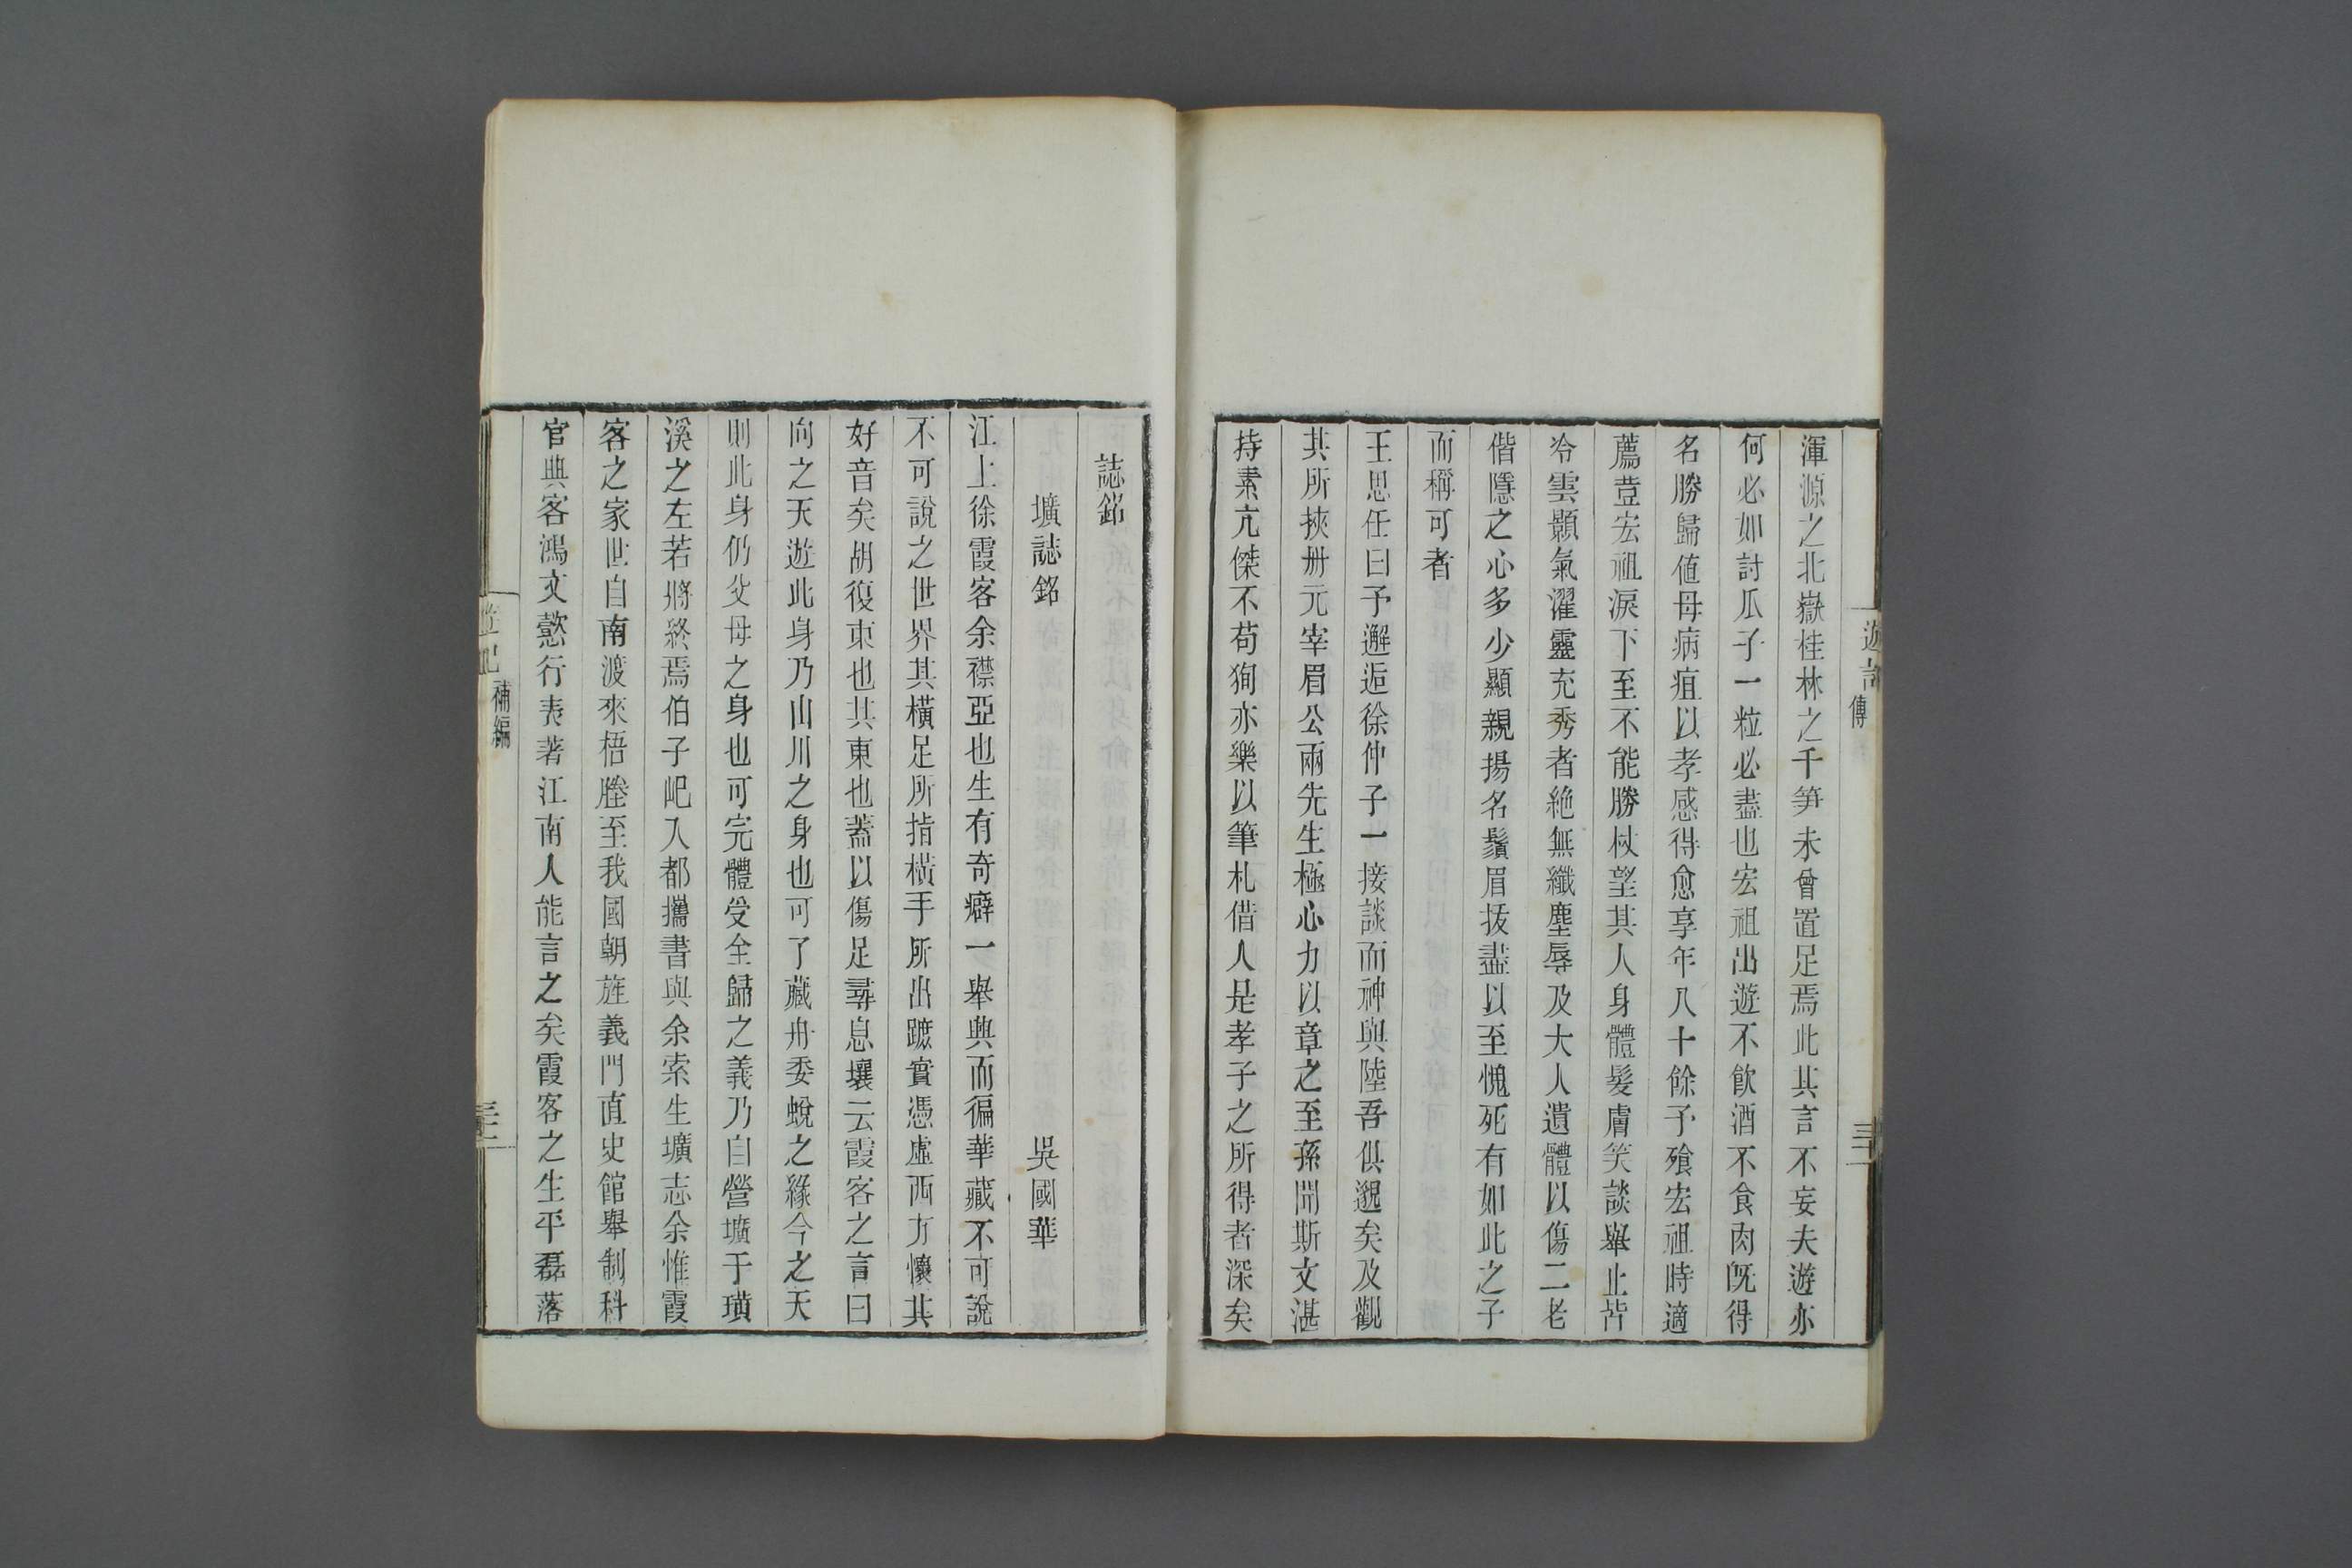 遊記
傳
渾源之北嶽桂林之千笋未曾置足焉此其言不妄夫遊亦
何必如討瓜子一粒必盡也宏祖出遊不飲酒不食肉旣得
名勝歸値母病疽以孝感得愈享年八十餘予飱宏祖時適
薦荳宏祖淚下至不能勝杖望其人身體髮膚笑談舉止皆
冷雲顥氣濯靈充秀者絶無纖塵辱及大人遺體以傷二老
偕隱之心多少顯親揚名鬚眉拔盡以至愧死有如此之子
而稱可者
王思任曰予邂逅徐仲子一接談而神與陸吾俱邈矣及觀
其所挾册元宰眉公兩先生極心力以章之至孫聞斯文湛
持素亢傑不苟狥亦樂以筆札借人是孝子之所得者深矣
誌銘
壙誌銘 吳國華
江上徐霞客余襟亞也生有奇癖一舉興而徧華藏不可說
不可說之世界其橫足所指橫手所出蹠實憑虛西方懷其
好音矣胡復東也其東也蓋以傷足尋息壤云霞客之言曰
向之天遊此身乃山川之身也可了藏舟委蛻之緣今之天
則此身仍父母之身也可完體受全歸之義乃自營壙于璜
溪之左若將終焉伯子屺入都攜書與余索生壙志余惟霞
客之家世自南渡來梧塍至我國朝旌義門直史館舉制科
官典客鴻文懿行表著江南人能言之矣霞客之生平磊落
補編